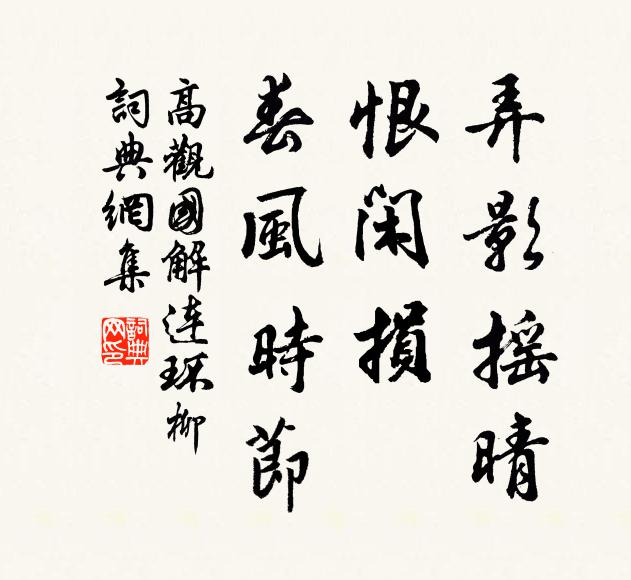 弄影摇晴
恨闲損
春風時節
高觀國解連环柳
詞典網集
詞典网印